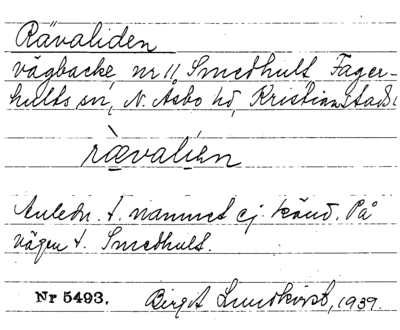 Rävaliden
vägbacke, nr 11, Smedhult, Fager-
hults sn, N. Åsbo hd, Kristianstads l
ræ̀valíən
Anledn. t. namnet ej känd. På
vägen t. Smedhult.
Nr 5493. Birgit Lundkvist, 1939.